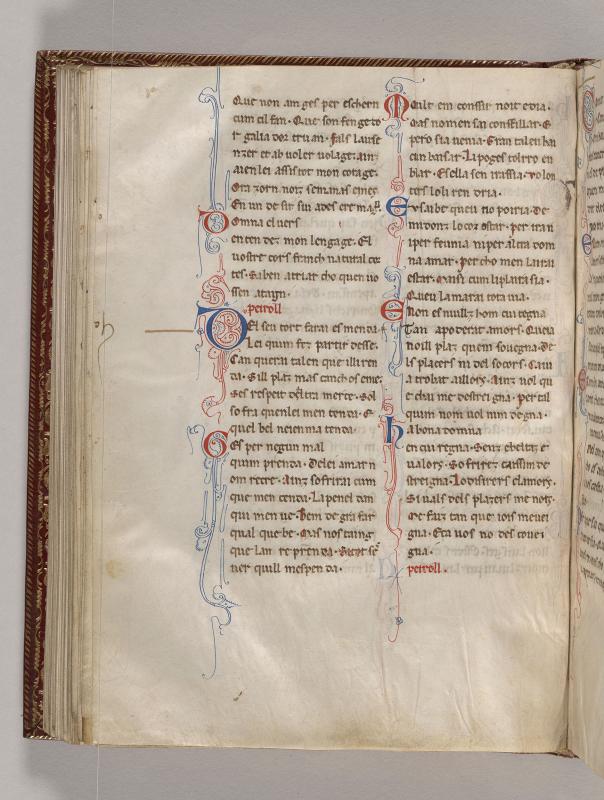 Que non am ges per eschern
cum cil fan. Que son fengeto
r galiador truan. fals lause
nzer et ab voler volage. ainz
auen lei assis tot mon corage.
Ora zorn noit semanas e mes
En un desir sui ades
Domna el vers
enten dez mon lengage. El
uostre cors franch natural co
tes. Saben atriar cho quen uo
ssen ataign.
peiroll
Del seu tort farai esmenda
Lei quim fez partir desse.
Can querai talen que illiren
da. Sill plaz mas canchos e me
Ses respeit daltra merce. Sol
sofra quen lei men tenda. E
quel bel neien ma tenda.
Ges per negun mal
quim prenda. Delei amar n
om recre. Ainz sofrirai cum
que men cenda. La pena el dan
qui men ue. Bem degra far
qual que be. Mas nos taing
que lam reprenda.
uer quill mespenda.
Moilt em conssir noit e dia.
Mas nomen sai conseillar. E
pero sia uenia. Gran talen han
cun baisar. Li poges tolrro en
blar. E sella sen iraissia. Volon
ters loli ren dria.
Eu saibe queu no poiria. De
midonz lo cor ostar. per iran
i per feunia ni per altra dom
na amar. per cho men laisai
estar. Ensi cum li plaira sia.
Queu lamarai tota uia.
Enon es nuillz hom cui tegna
Tan apoderat amors. Queu
no ill plaz quem souegna. De
ls placers ni del socors. Cau
a trobat aillors. Ainz uol qu
e chai me destregna. per tal
quim nom uol nim degna.
ha bona domna
en cui regna. Senz e beltaz e
ualors. Sofrirez caissim de
streigna. Lo desirers e lamors.
Si uals dels plazers me nors.
Me faiz tan que iois me uei
gna. Era uos no des couei
gna.
peiroll.